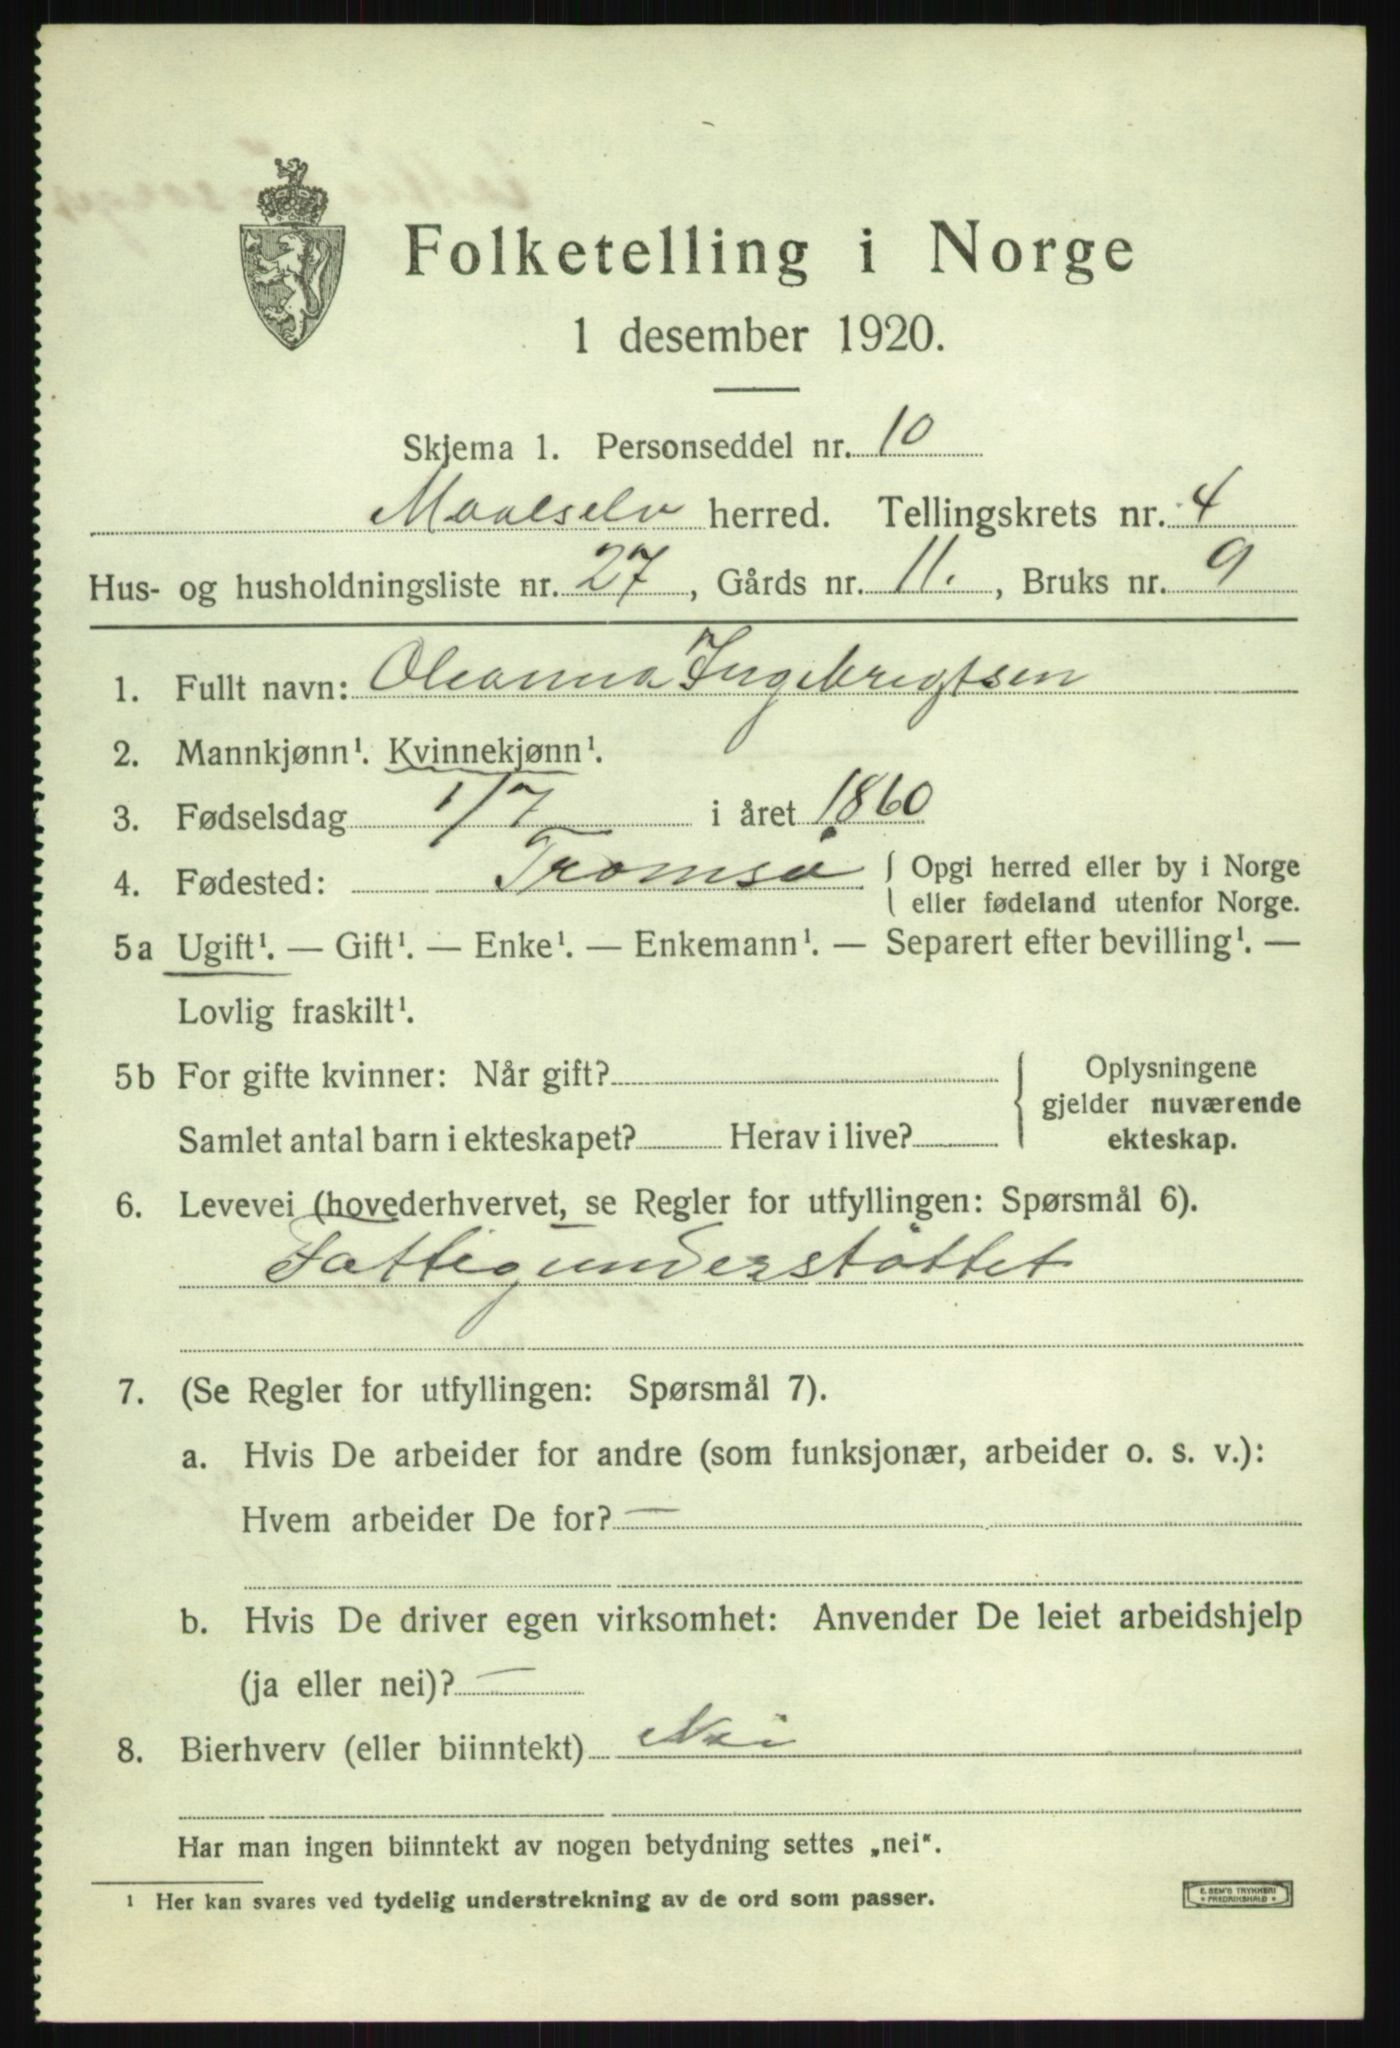 Folketelling i Norge
1 desember 1920.
Skjema 1. Personseddel nr. 10
Maalselv herred. Tellingskrets nr. 4
Hus- og husholdningsliste nr. 27, Gårds nr. 11., Bruks nr. 9
1. Fullt navn: Oleanna Ingebrigtsen
2. Mannkjønn¹. Kvinnekjønn¹.
3. Fødselsdag 1/7 i året 1860
4. Fødested: Tromsø { Opgi herred eller by i Norge
eller fødeland utenfor Norge.
5a Ugift¹. — Gift¹. — Enke¹. — Enkemann¹. — Separert efter bevilling¹. —
Lovlig fraskilt¹.
5b For gifte kvinner: Når gift? { Oplysningene
gjelder nuværende
Samlet antal barn i ekteskapet? Herav i live? ekteskap.
6. Levevei (hovederhvervet, se Regler for utfyllingen: Spørsmål 6).
Fattigunderstøttet
7. (Se Regler for utfyllingen: Spørsmål 7).
a. Hvis De arbeider for andre (som funksjonær, arbeider o. s. v.):
Hvem arbeider De for? —
b. Hvis De driver egen virksomhet: Anvender De leiet arbeidshjelp
(ja eller nei)? —
8. Bierhverv (eller biinntekt) Nei
Har man ingen biinntekt av nogen betydning settes „nei“.
¹ Her kan svares ved tydelig understrekning av de ord som passer.
E. SEM'S TRYKKERI
FREDRIKSHALD